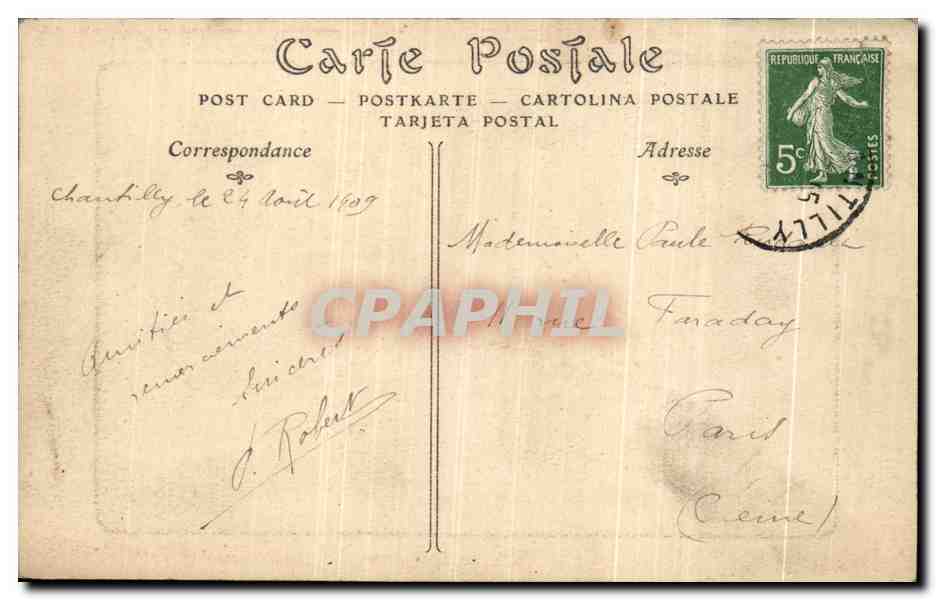 Carte Postale
POST CARD — POSTKARTE — CARTOLINA POSTALE
TARJETA POSTAL
Correspondance
Adresse
REPUBLIQUE FRANÇAISE
5c
POSTES
NTILLY
Chantilly le 24 Août 1909
Amitiés et
remerciements
sincères
P. Robert
Mademoiselle Paule
rue Faraday
Paris
(Seine)
CPAPHIL